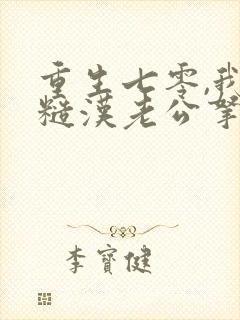 重生七零,我
糙漢老公寧
李寶健